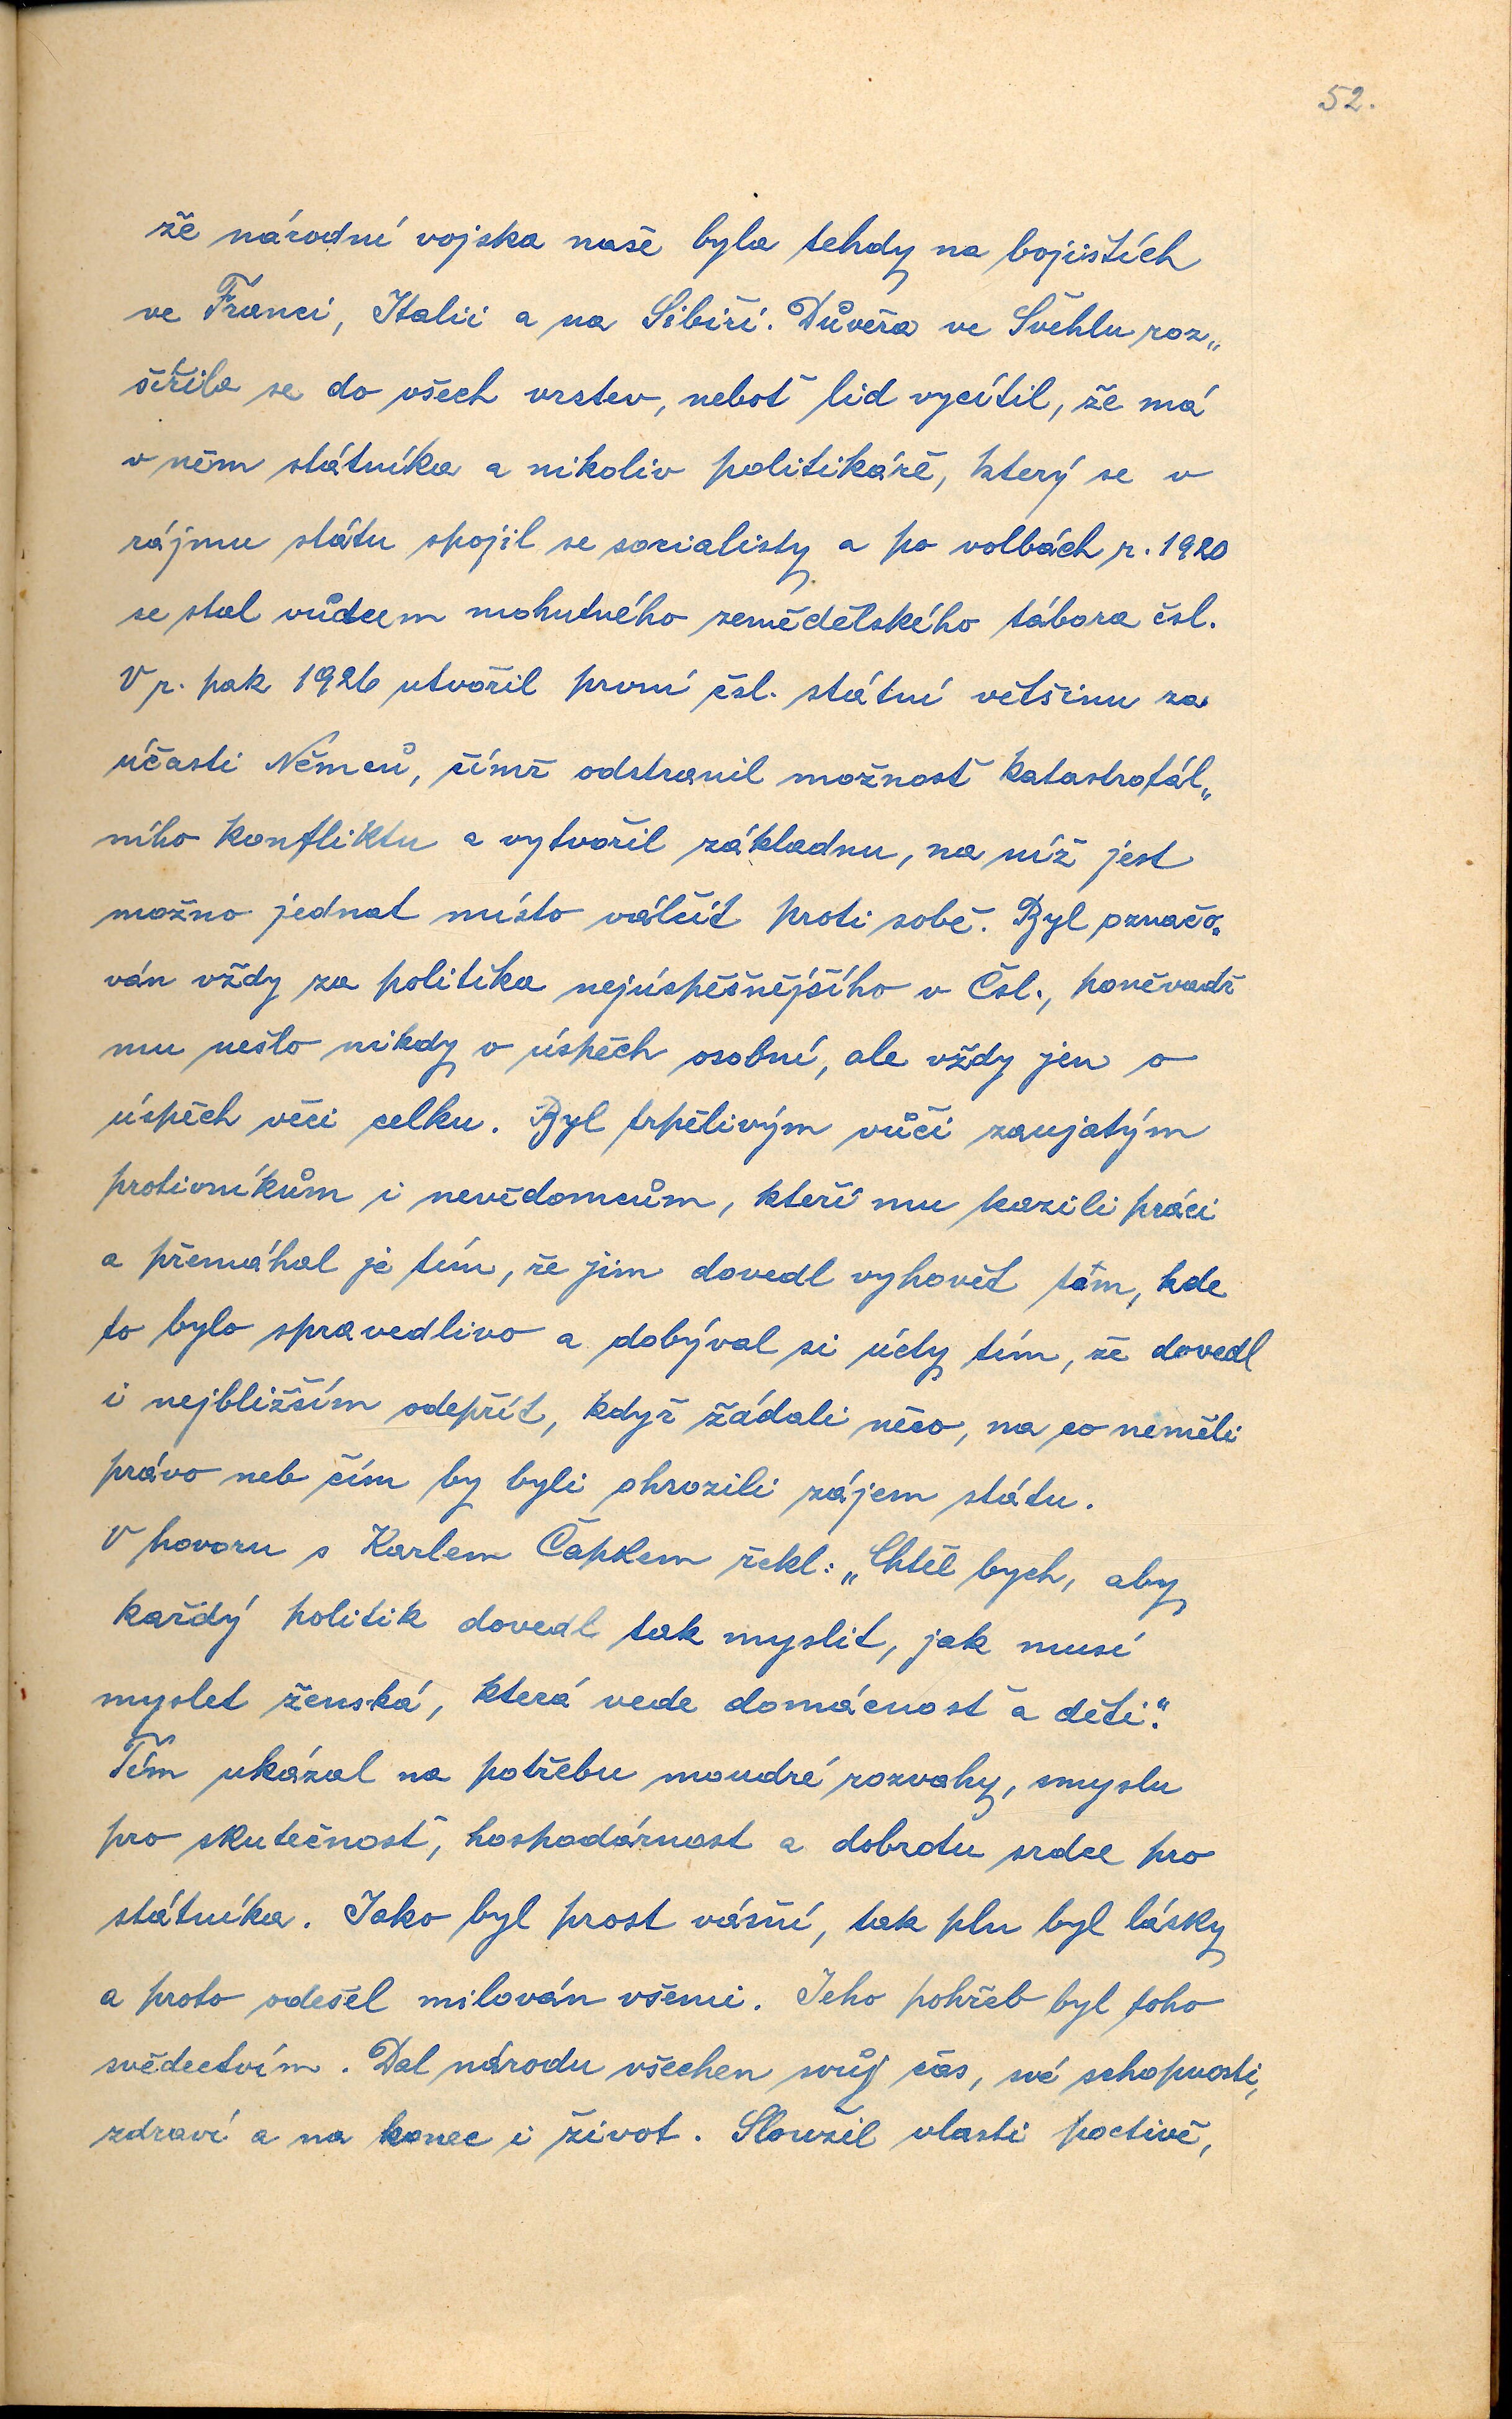 52.
že národní vojska naše byla tehdy na bojištích
ve Franci, Italii a na Sibiři. Důvěra ve Švehlu roz„
šířila se do všech vrstev, neboť lid vycítil, že má
v něm státníka a nikoliv politikáře, který se v
zájmu státu spojil se socialisty a po volbách r. 1920
se stal vůdcem mohutného zemědělského tábora čsl.
V r. pak 1926 utvořil první čsl. státní většinu za
účasti Němců, čímž odstranil možnosť katastrofál„
ního konfliktu a vytvořil základnu, na níž jest
možno jednat místo válčit proti sobě. Byl označo„
ván vždy za politika nejúspěšnějšího v Čsl., poněvadž
mu nešlo nikdy o úspěch osobní, ale vždy jen o
úspěch věci celku. Byl trpělivým vůči zaujatým
protivníkům i nevědomcům, kteří mu kazili práci
a přemáhal je tím, že jim dovedl vyhovět tam, kde
to bylo spravedlivo a dobýval si úcty tím, že dovedl
i nejbližším odepřít, když žádali něco, na co neměli
právo neb čím by byli ohrozili zájem státu.
V hovoru s Karlem Čapkem řekl: „Chtěl bych, aby
každý politik dovedl tak myslit, jak musí
myslet ženská, která vede domácnosť a děti."
Tím ukázal na potřebu moudré rozvahy, smyslu
pro skutečnosť, hospodárnost a dobrotu srdce pro
státníka. Jako byl prost vášní, tak pln byl lásky
a proto odešel milován všemi. Jeho pohřeb byl toho
svědectvím. Dal národu všechen svůj čas, své schopnosti,
zdraví a na konec i život. Sloužil vlasti poctivě,